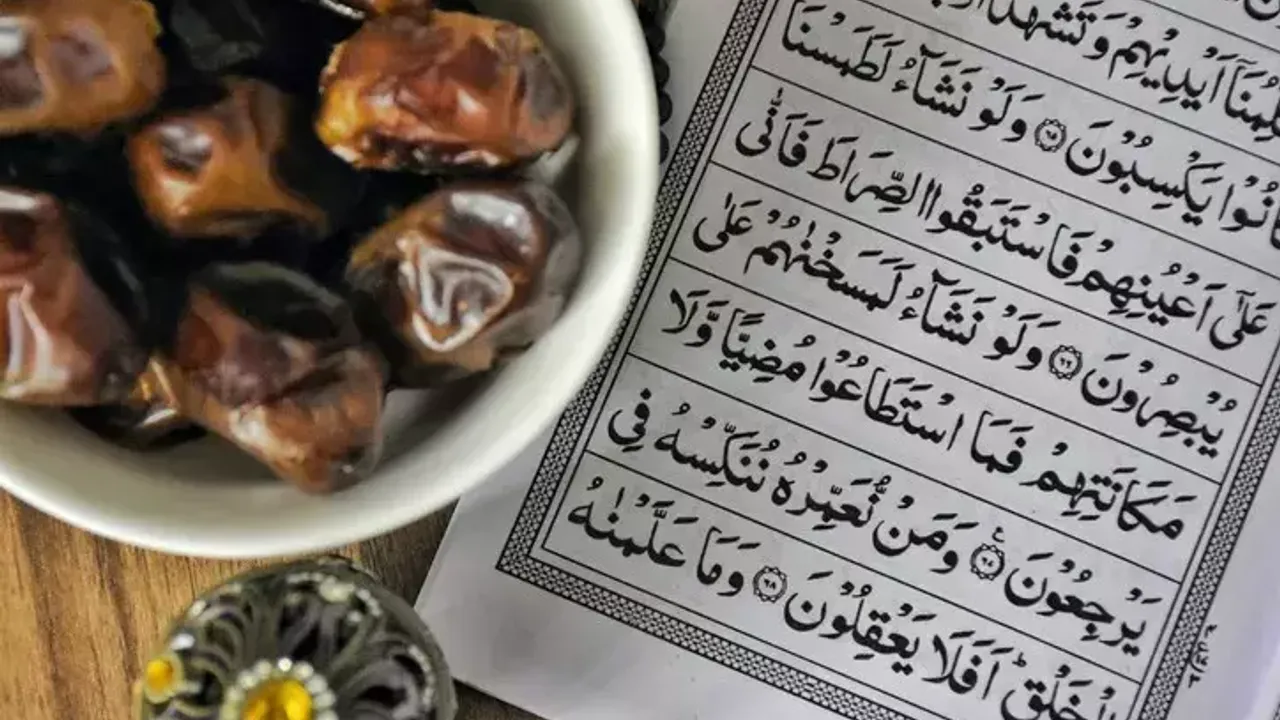 اَيْدِيْهِمْ وَتَشْهَدُ
كَانُوْا يَكْسِبُوْنَ ۝٦٥ وَلَوْ نَشَآءُ لَطَمَسْنَا
عَلٰٓى اَعْيُنِهِمْ فَاسْتَبَقُوا الصِّرَاطَ فَاَنّٰى
يُبْصِرُوْنَ ۝٦٦ وَلَوْ نَشَآءُ لَمَسَخْنٰهُمْ عَلٰى
مَكَانَتِهِمْ فَمَا اسْتَطَاعُوْا مُضِيًّا وَّلَا
يَرْجِعُوْنَ ۝٦٧ وَمَنْ نُّعَمِّرْهُ نُنَكِّسْهُ فِى
الْخَلْقِ اَفَلَا يَعْقِلُوْنَ ۝٦٨ وَمَا عَلَّمْنٰهُ